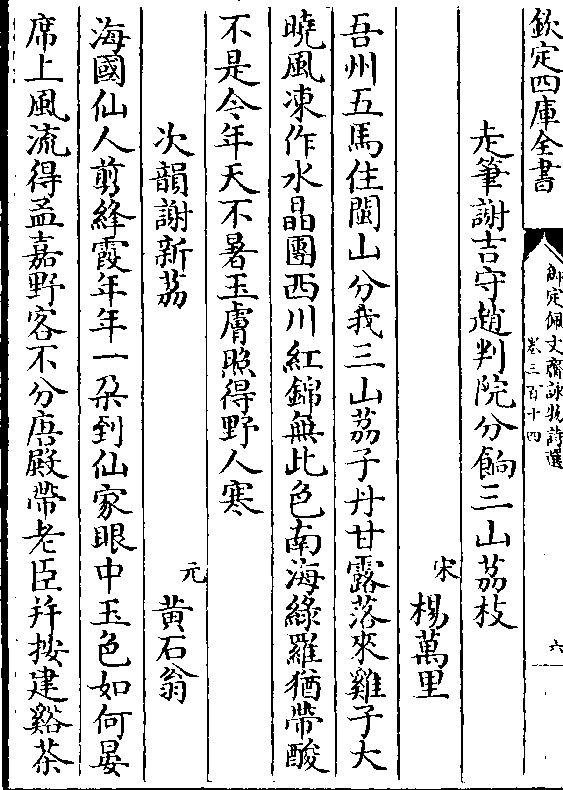 欽定四庫全書
御定佩文齋詠物詩選
卷三百十四
六
走筆謝吉守趙判院分餉三山荔枝
宋 楊萬里
吾州五馬住閩山分我三山荔子丹甘露落來雞子大
曉風凍作水晶團西川紅錦無此色南海綠羅猶帶酸
不是今年天不暑玉膚照得野人寒
次韻謝新荔
元 黃石翁
海國仙人剪絳霞年年一朶到仙家眼中玉色如何晏
席上風流得孟嘉野客不分唐殿帶老臣幷按建谿茶